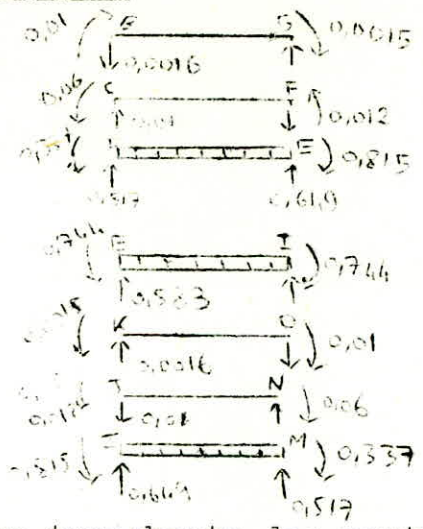 0,01 B G 0,0015
0,0016
0,06 C F 0,012
0,01
E 0,815
0,517 0,649
0,744 E I 0,744
0,583
0,0015 K O 0,01
0,0016
J N 0,06
0,012 0,01
0,815 I M 0,337
0,649 0,517